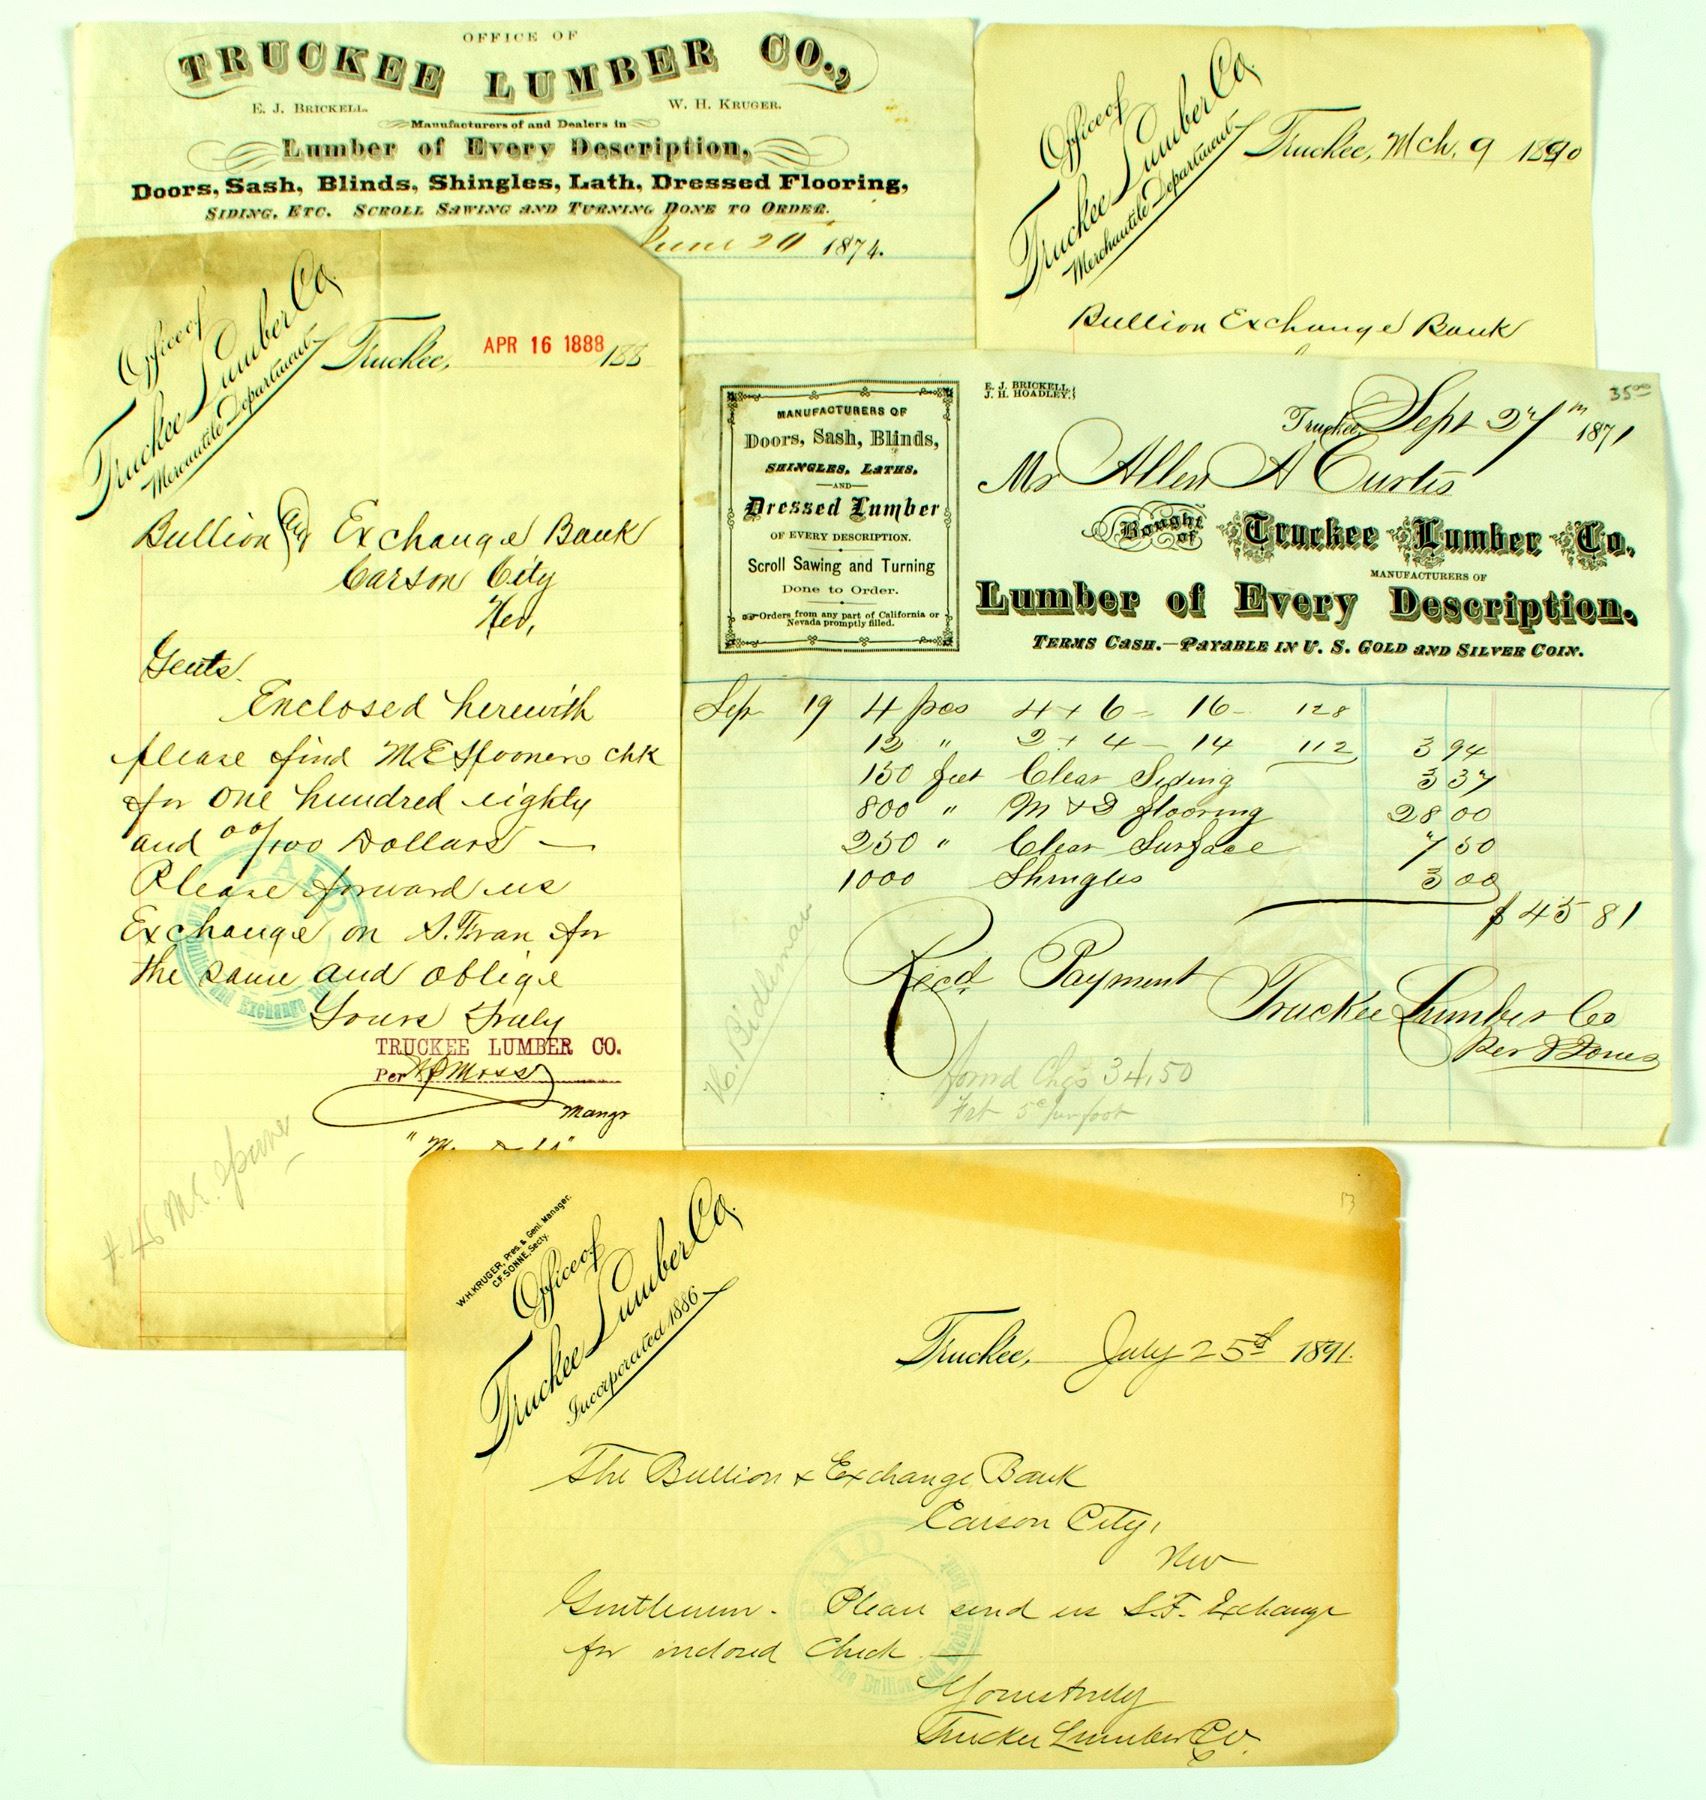 OFFICE OF
TRUCKEE LUMBER CO.,
E. J. BRICKELL. W. H. KRUGER.
Manufacturers of and Dealers in
Lumber of Every Description,
Doors, Sash, Blinds, Shingles, Lath, Dressed Flooring,
SIDING, ETC. SCROLL SAWING AND TURNING DONE TO ORDER.
June 20 1874.
Office of
Truckee Lumber Co.
Merchantile Department
Truckee, Mch. 9 1890
Bullion Exchange Bank
Office of
Truckee Lumber Co.
Mercantile Department
Truckee, APR 16 1888 188
Bullion and Exchange Bank
Carson City
Nev,
Gents.
Enclosed herewith
please find M.E Spooners chk
for One hundred eighty
and 00/100 Dollars —
Please forward us
Exchange on S. Fran for
the same and oblige
Yours Truly
TRUCKEE LUMBER CO.
Per Moss
Mangr
PAID
and Exchange
# 46 M.E.
35 00
MANUFACTURERS OF
Doors, Sash, Blinds,
SHINGLES, LATHS,
—AND—
Dressed Lumber
OF EVERY DESCRIPTION.
Scroll Sawing and Turning
Done to Order.
Orders from any part of California or
Nevada promptly filled.
E. J. BRICKELL,
J. H. HOADLEY.
Truckee, Sept 27th 1871
Mr Allen A Curtis
Bought of Truckee Lumber Co.
MANUFACTURERS OF
Lumber of Every Description.
TERMS CASH.—PAYABLE IN U. S. GOLD AND SILVER COIN.
Sep 19 4 pcs 4 + 6 – 16 – 128
12 " 2 + 4 – 14 112 3 94
150 feet Clear Siding 3 37
800 " M & D flooring 28 00
250 " Clear Surface 7 50
1000 Shingles 3 00
$ 45 81
Recd Payment Truckee Lumber Co
Per J Jones
H. Bidleman
forwd Chgs 34.50
Frt 5c per foot
W.H. KRUGER, Pres. & Genl. Manager.
C.F. SONNE, Secty.
Office of
Truckee Lumber Co.
Incorporated 1886
Truckee, July 25th 1891.
The Bullion & Exchange Bank
Carson City,
Nev
Gentlemen. Please send us S.F. Exchange
for inclosed Check —
Yours truly
Truckee Lumber Co.
PAID
The Bullion and Exchange Bank